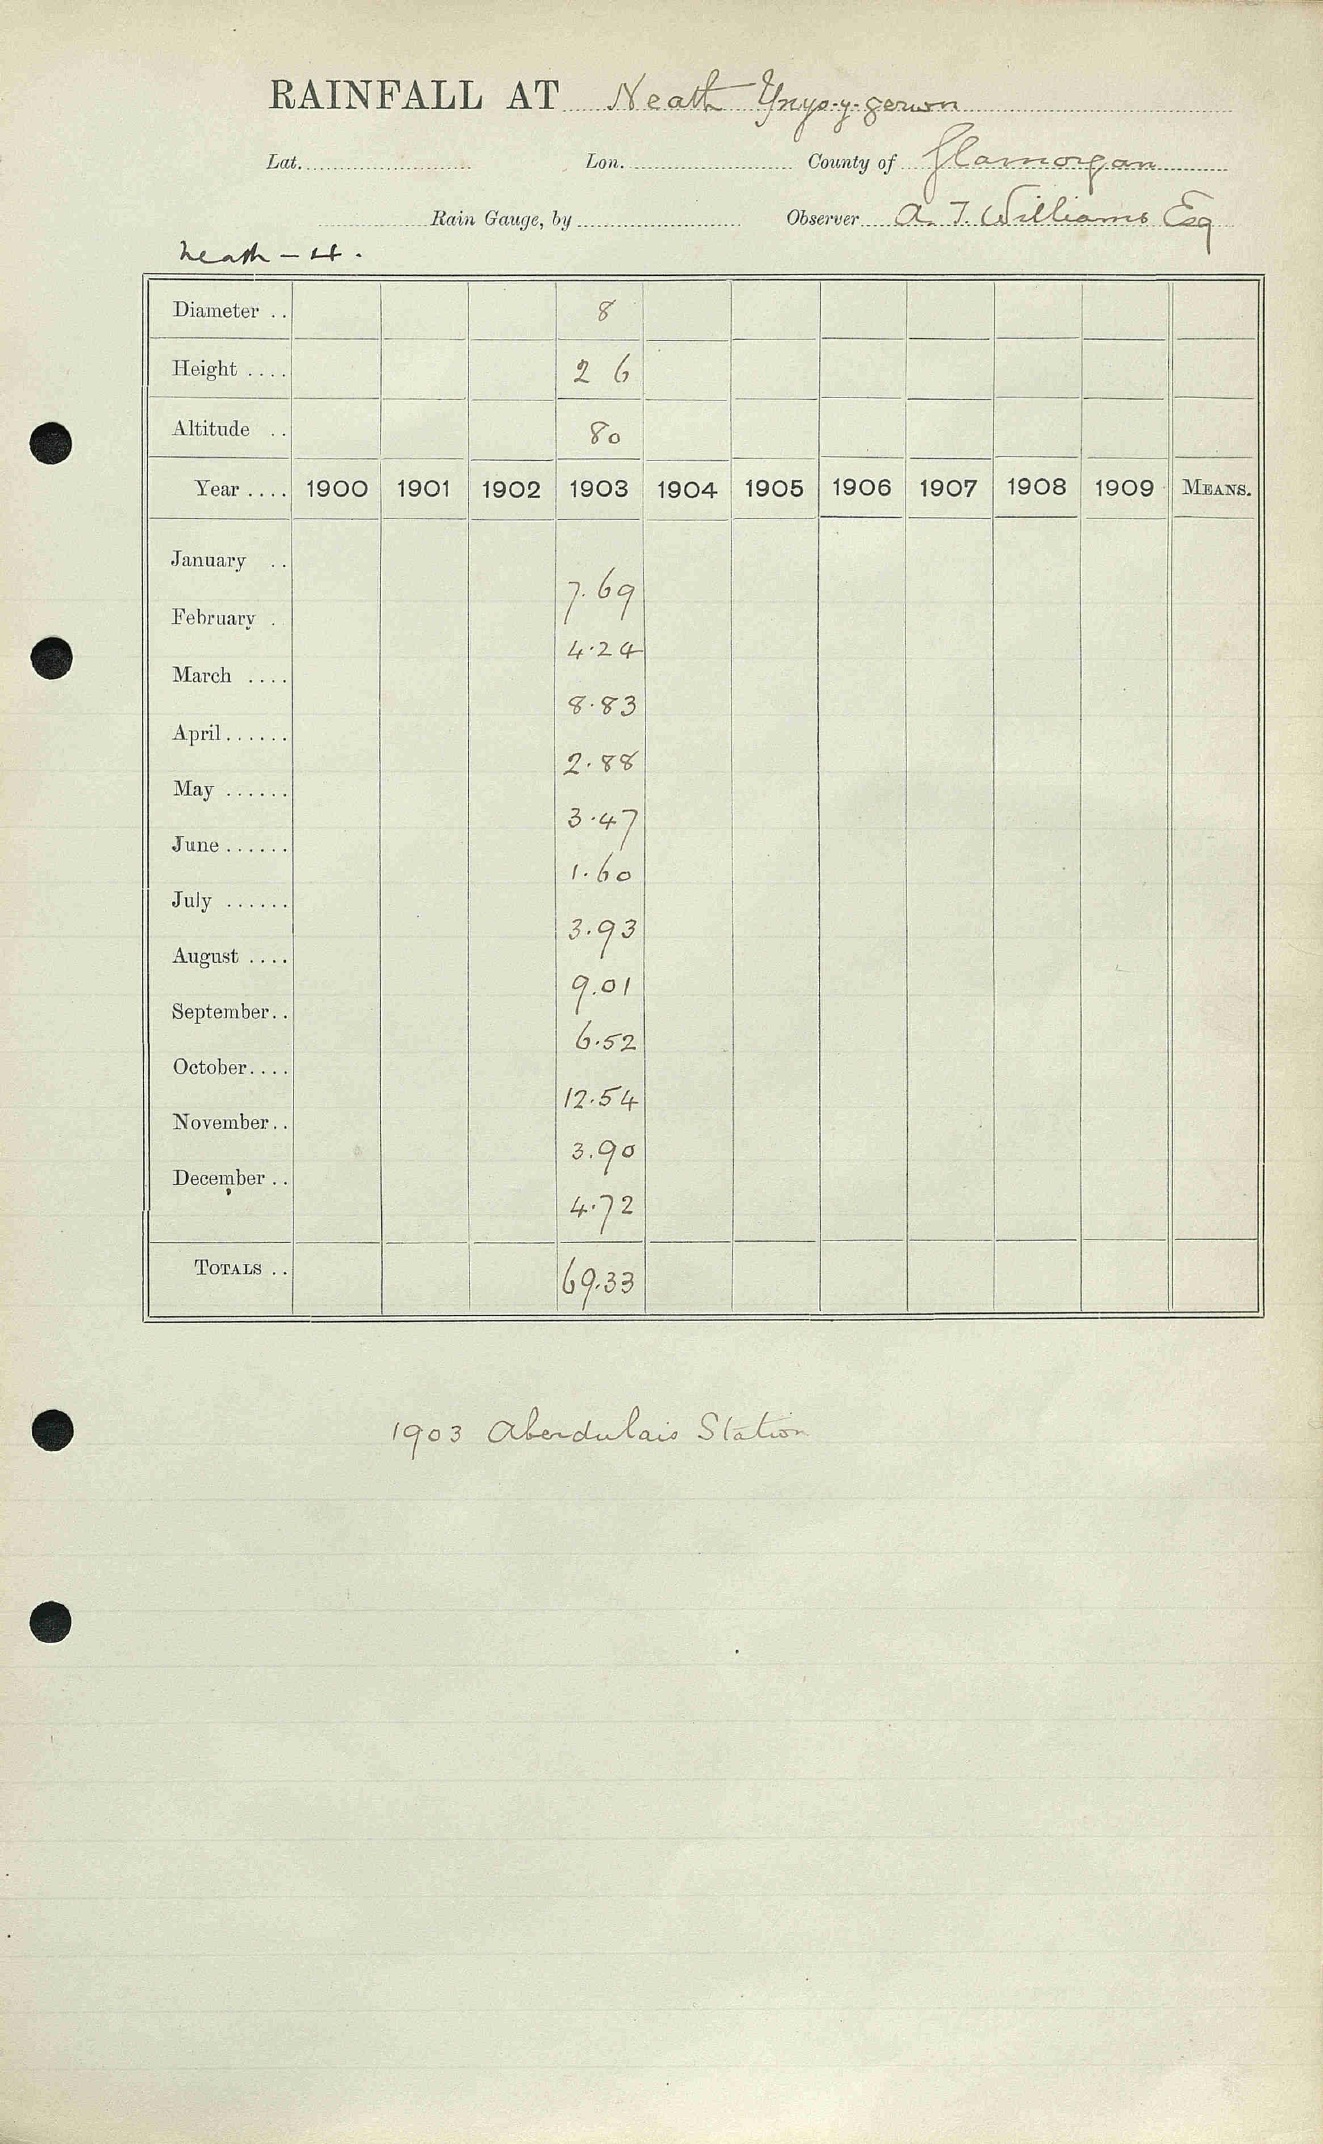 RAINFALL AT Neath Ynys-y-gerwn
Lat. Lon. County of Glamorgan
Rain Gauge, by Observer A. T. Williams Esq
Neath - 4.
Diameter .. 8
Height .... 2 6
Altitude .. 80
Year .... 1900 1901 1902 1903 1904 1905 1906 1907 1908 1909 MEANS.
January ..
7.69
February .
4.24
March ....
8.83
April......
2.88
May ......
3.47
June......
1.60
July ......
3.93
August ....
9.01
September..
6.52
October....
12.54
November..
3.90
December..
4.72
TOTALS .. 69.33
1903 Aberdulais Station